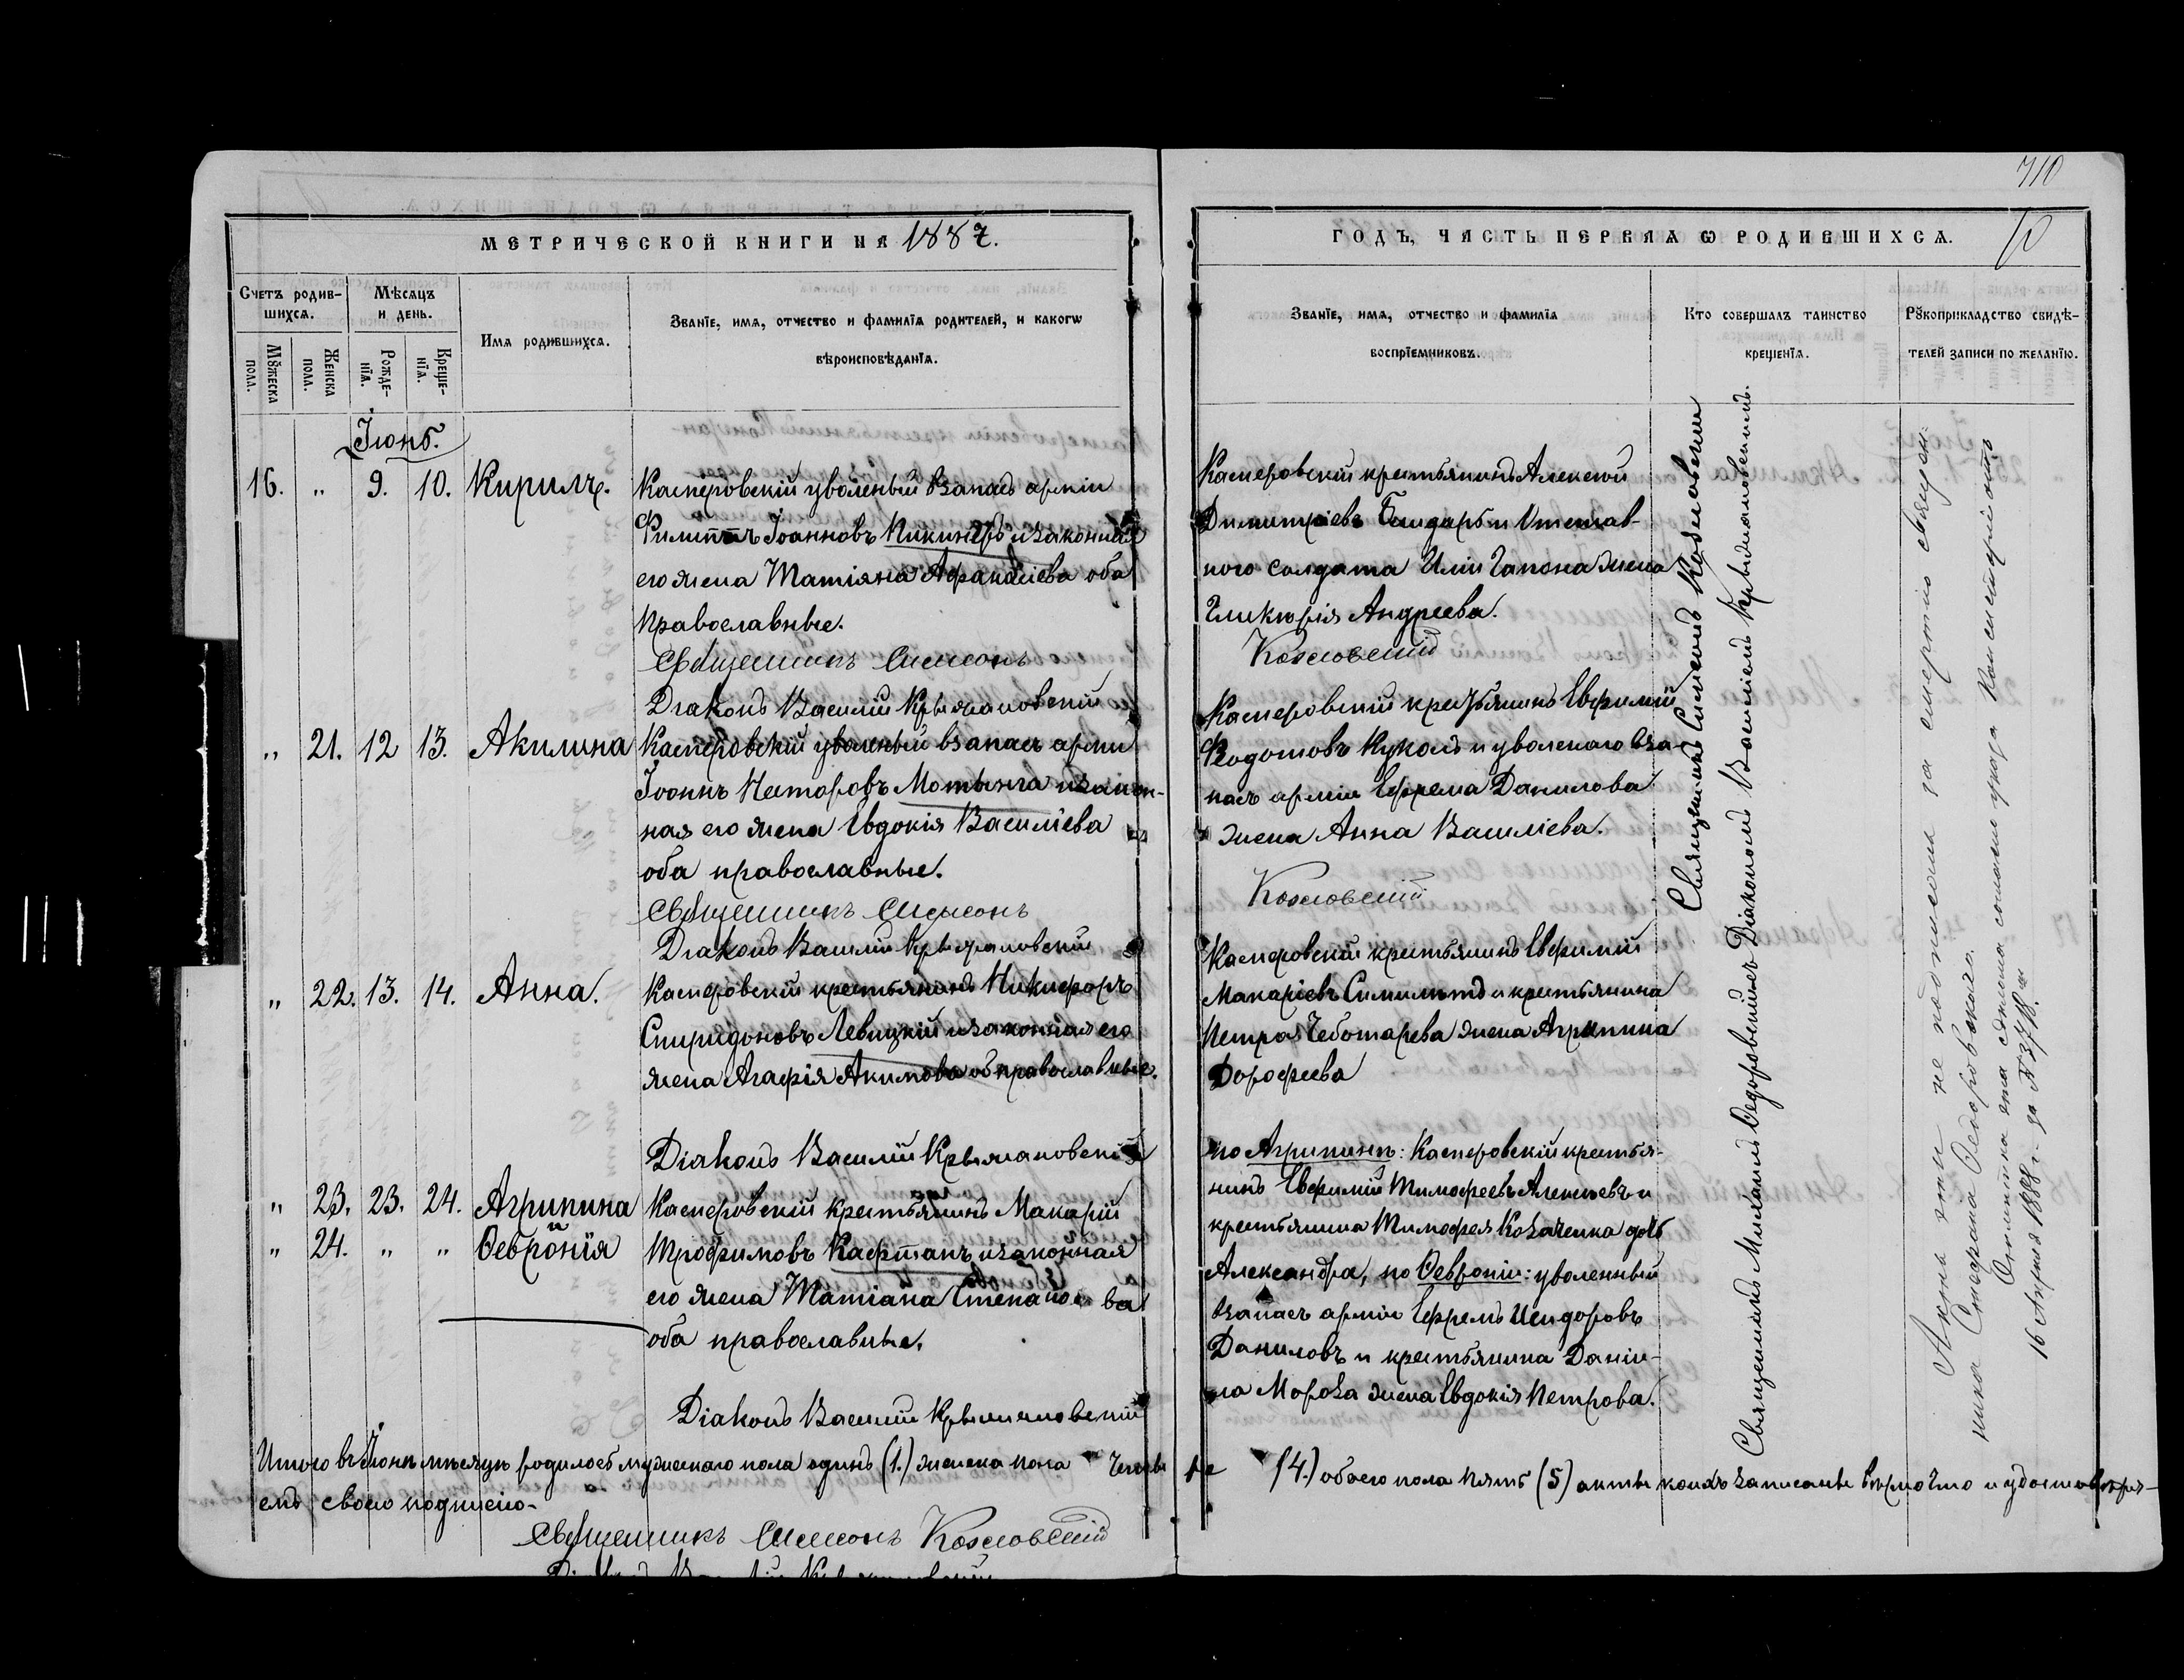 710
МЕТРИЧЕСКОЙ КНИГИ НА 1887.
Счетъ родившихсѧ.
Мѣсѧцъ и день.
Имѧ родившихсѧ.
Званїе, имѧ, отчество и фамилїѧ родителей, и какогѡ вѣроисповѣданїѧ.
Мꙋжеска пола.
Женска пола.
Рожденїѧ.
Крещенїѧ.
ГОДЪ, ЧАСТЬ ПЕРВАѦ Ѡ РОДИВШИХСѦ.
Званїе, имѧ, отчество и фамилїѧ воспрїемниковъ.
Кто совершалъ таинство крещенїѧ.
Рꙋкоприкладство свидѣтелей записи по желанїю.
Іюнь.
16. „ 9. 10. Кирилъ.
Касперовскій уволеный взапасъ арміи
Филиппъ Іоанновъ Пикинеръ и законная
его жена Татіяна Афанасіева оба
православные.
Священникъ Симеонъ
Діаконъ Василій Крыжановскій
Касперовскій крестьянинъ Алексій
Димитріевъ Бондарь и отстав-
ного солдата Иліи Гапона жена
Гликирія Андреева.
Козловскій
„ 21. 12 13. Акилина
Касперовскій уволеный взапасъ арміи
Іоаннъ Несторовъ Мотынга и закон-
ная его жена Евдокія Василіева
оба православные.
Священникъ Симеонъ
Діаконъ Василій Крыжановскій
Касперовскій крестьянинъ Евфимій
Федотовъ Куколь и уволенаго вза-
пасъ арміи Ефрема Данилова
жена Анна Василіева.
Козловскій
„ 22. 13. 14. Анна.
Касперовскій крестьянинъ Никифоръ
Спиридоновъ Левицкій и законная его
жена Агафія Акимова об православные.
Діаконъ Василій Крыжановскій
Касперовскій крестьянинъ Евфимій
Макаріевъ и крестьянина
Петра Чеботарева жена Агрипина
Дорофеева
„ 23. 23. 24. Агрипина
„ 24. „ „ Ѳевронія
Касперовскій крестьянинъ Макарій
Трофимовъ Кафтанъ и законная
его жена Татіана Степанова
оба православные.
Діаконъ Василій Крыжановскій
по Агрипинѣ: Касперовскій крестья-
нинъ Евфимій Тимофеевъ Алексѣевъ и
крестьянина Тимофея Козаченка дочь
Александра, по Ѳевроніи: уволенный
взапасъ арміи Ефремъ Исидоровъ
Даниловъ и крестьянина Даніи-
ла Мороза жена Евдокія Петрова.
Священникъ Симеонъ Козловскій
Священникъ Михаилъ Федоровскій съ Діакономъ Василіемъ Крыжановскимъ.
Акты эти не подписаны за смертію священ-
ника Стефана Федоровского.
Отмѣтка эта сдѣлана согласно указа Консисторіи отъ
16 Апрѣля 1888 г. за № 3718.м
Итого въ Іюнѣ мѣсяцѣ родилось мужескаго пола одинъ (1.) женска пола четыре (4.) обоего пола пять (5) акты коихъ записаны вѣрно что и удостовѣря-
емъ своею подписею-
Священникъ Симеонъ Козловскій